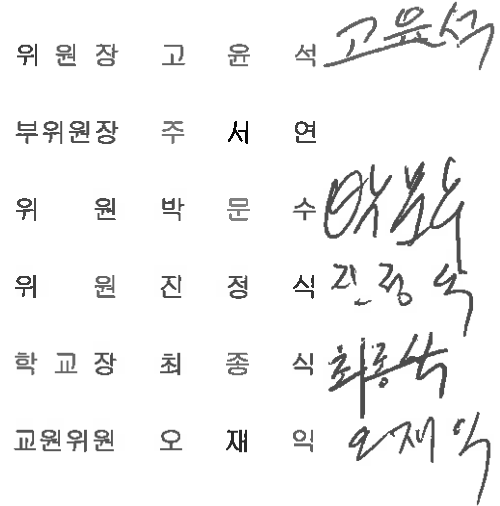 위 원 장 고 윤 석 고윤석
부위원장 주 서 연
위 원 박 문 수 박문수
위 원 진 정 식 진정식
학 교 장 최 종 식 최종식
교원위원 오 재 익 오재익